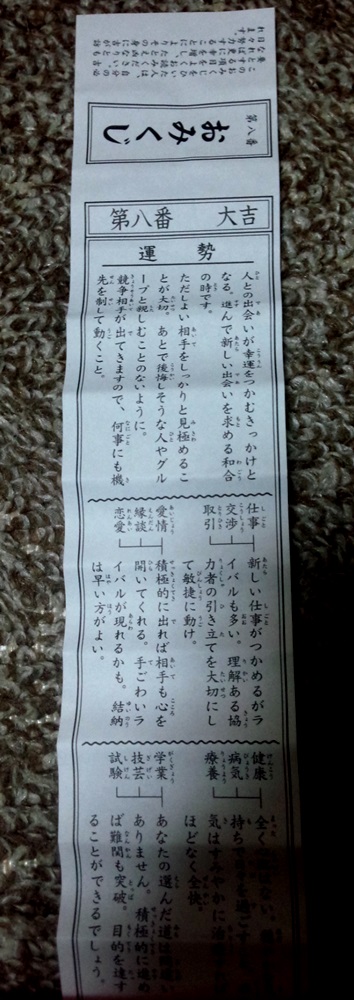 第八番
おみくじ
第八番 大吉
運勢
人との出会いが幸運をつかむきっかけと
なる。進んで新しい出会いを求める和合
の時です。
ただしよい相手をしっかりと見極めるこ
とが大切。あとで後悔しそうな人やグル
ープと親しむことのないように。
競争相手が出てきますので、何事にも機
先を制して動くこと。
仕事
交渉
取引
新しい仕事がつかめるがラ
イバルも多い。理解ある協
力者の引き立てを大切にし
て敏捷に動け。
愛情
縁談
恋愛
積極的に出れば相手も心を
開いてくれる。手ごわいラ
イバルが現れるかも。結納
は早い方がよい。
健康
病気
療養
全く
持ち
気はすみやかに
ほどなく全快。
学業
技芸
試験
あなたの選んだ道は
ありません。積極的に進め
ば難関も突破。目的を達す
ることができるでしょう。